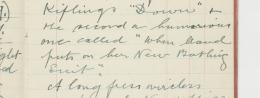 Kiplings "Dawn" &
the second a humorous
one called "When Maud
puts on her New Bathing
Suit".
A long press wireless